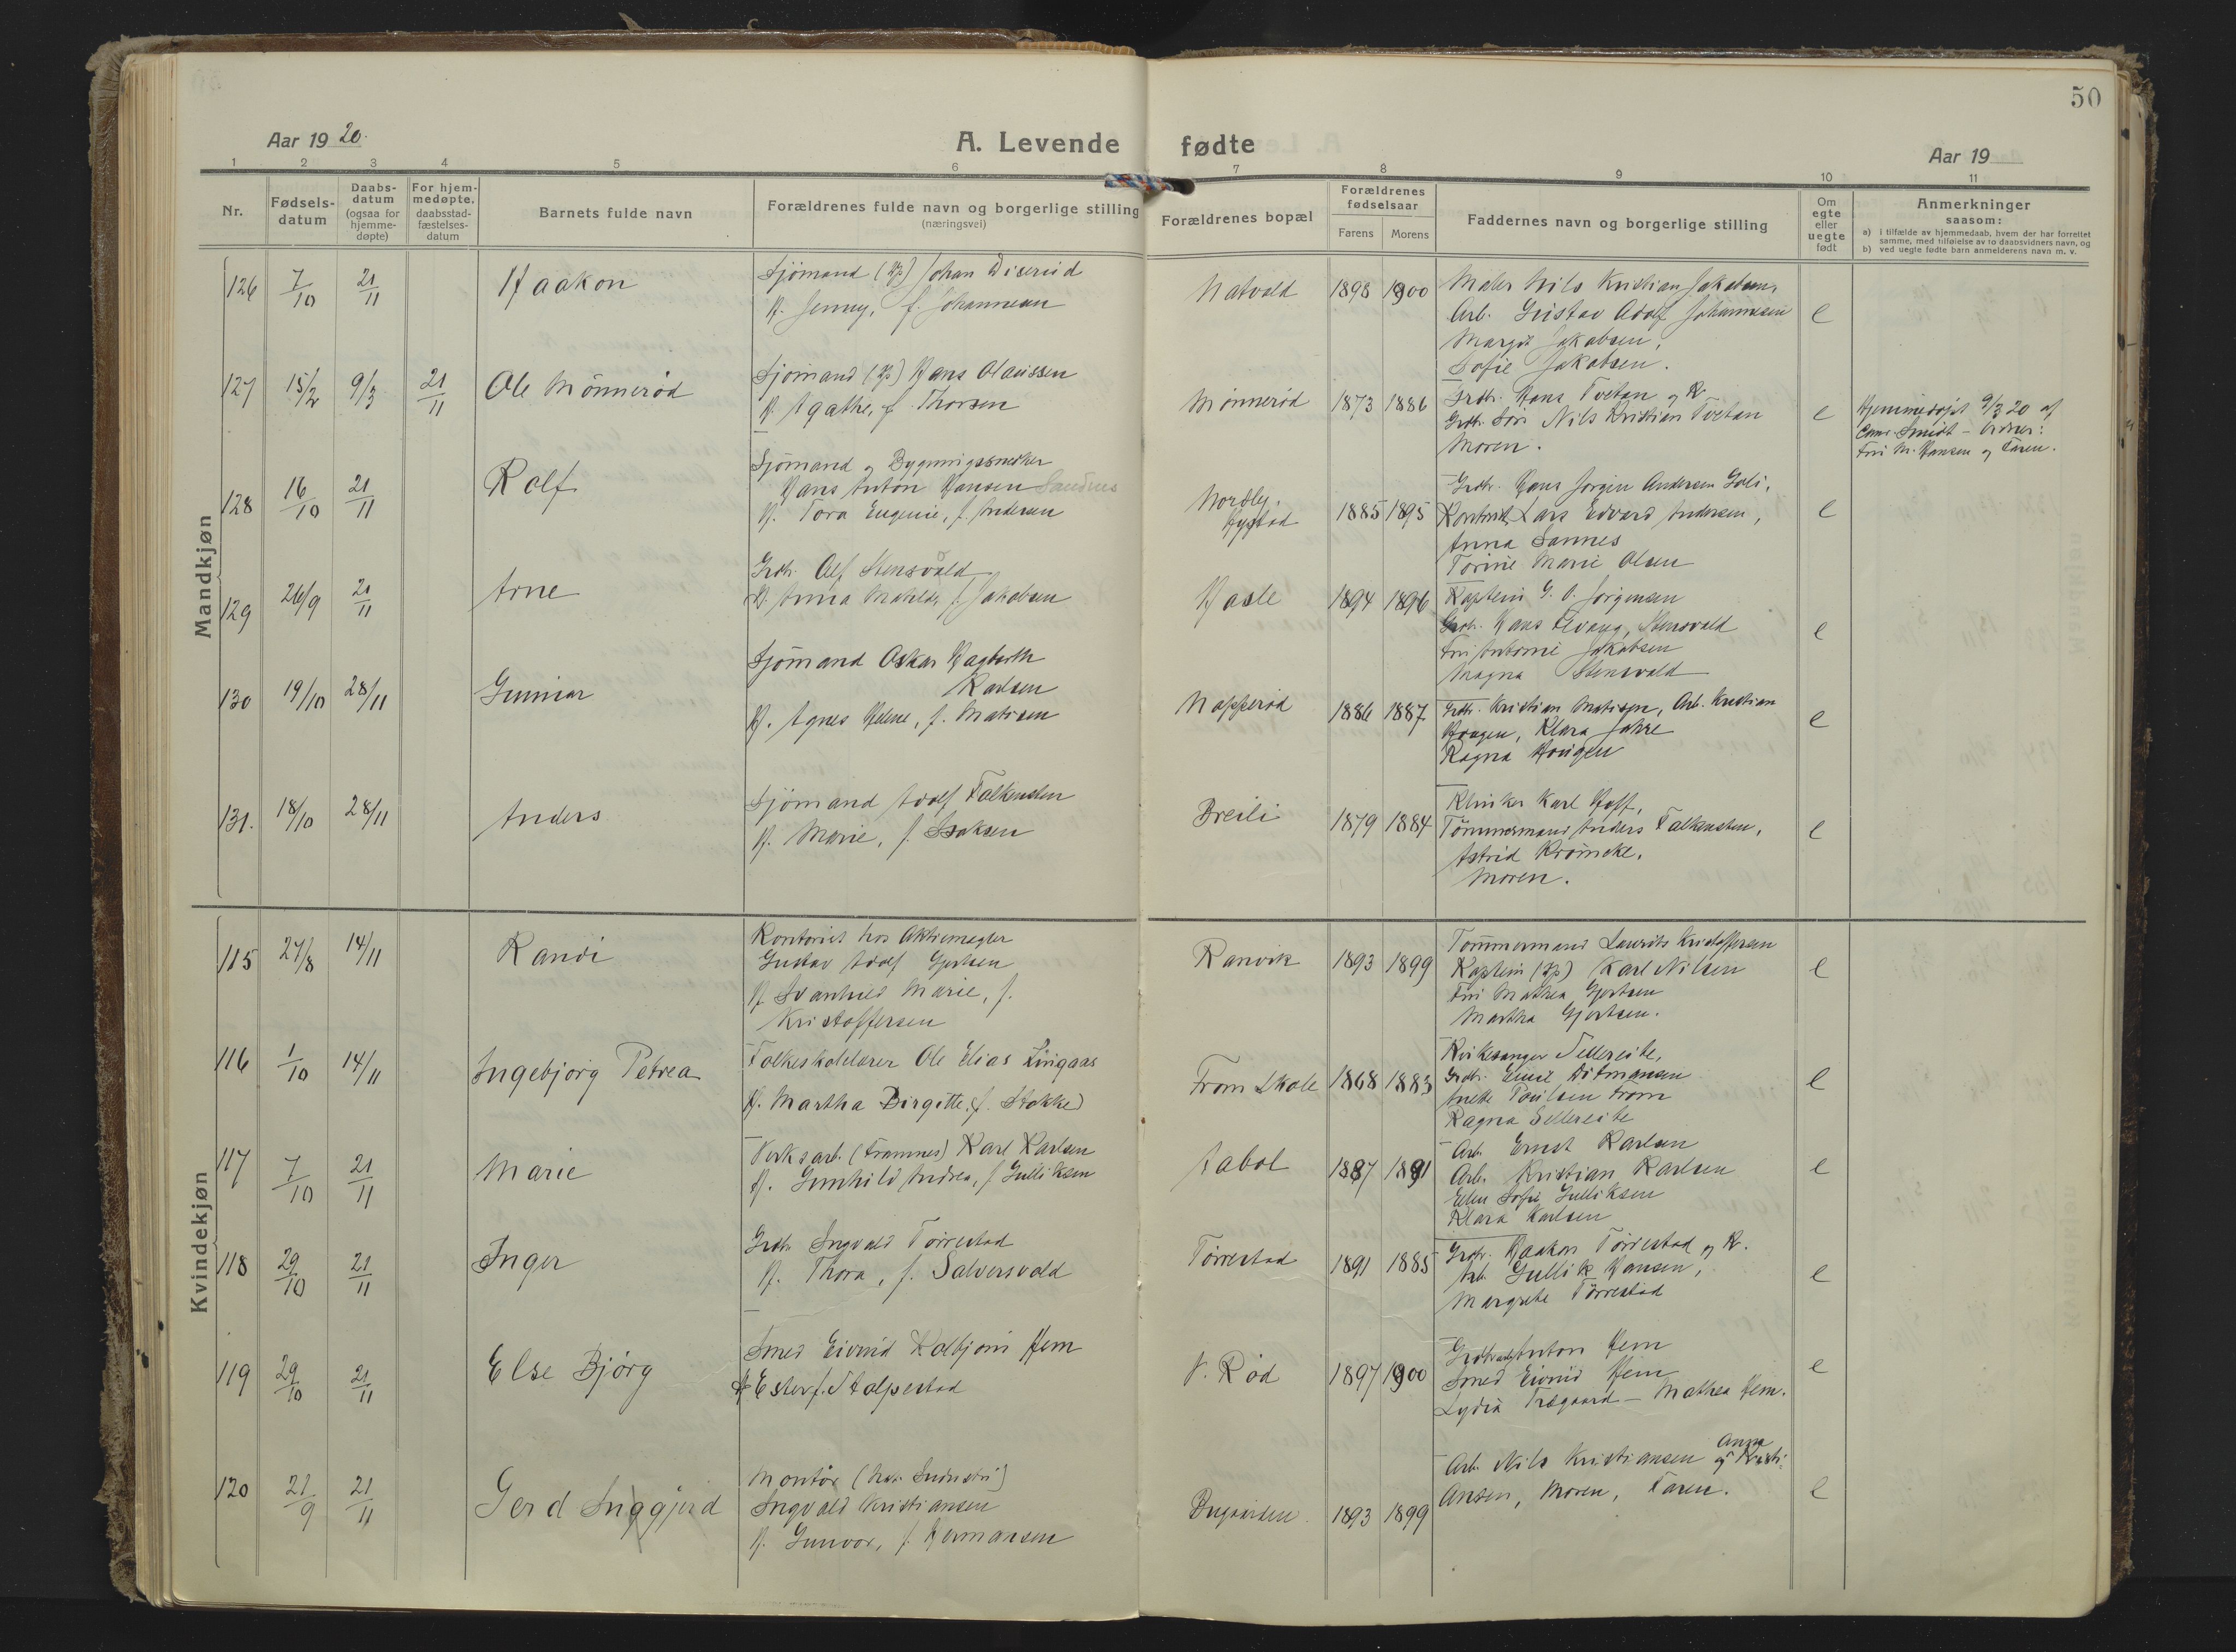 50
Aar 1920.
A. Levende fødte
Aar 19
1 2 3 4 5 6 7 8 9 10 11
Nr.
Fødsels-
datum
Daabs-
datum
(ogsaa for
hjemme-
døpte)
For hjem-
medøpte,
daabsstad-
fæstelses-
datum
Barnets fulde navn
Forældrenes fulde navn og borgerlige stilling
(næringsvei)
Forældrenes bopæl
Forældrenes
fødselsaar
Farens Morens
Faddernes navn og borgerlige stilling
Om
egte
eller
uegte
født
Anmerkninger
saasom:
a) i tilfælde av hjemmedaab, hvem der har forrettet
samme, med tilføielse av to daabsvidners navn, og
b) ved uegte fødte barn anmelderens navn m. v.
Mandkjøn
126 7/10 21/11 Haakon
Sjømand Johan
H. Jenny, f. Johannesen
Natvald 1898 1900
Maler Nils Kristian Jakobsen,
Arb. Gustav Adolf Johannesen
Margit Jakobsen,
Sofie Jakobsen.
e
127 15/2 9/3 21/11 Ole Mønnerød
Sjømand Hans Olaussen
H. Agathe, f. Thorsen
Mønnerød 1873 1886
Grdbr. Hans Tvetan og K
Grdbr. Søn Nils Kristian Tvetan
Moren.
e
Hjemmedøpt 9/3 20 af
Smidt - Vidner:
Fru M. Hansen og Faren.
128 16/10 21/11 Rolf
Sjømand og Bygningssnedker
Hans Anton Hansen Sandnes
H. Tora Eugenie, f. Andersen
Nordby,
1885 1895
Grdbr. Hans Jørgen Andersen
Kontorist Lars Edvard Andersen,
Anna Sannes
Torine Marie Olsen
e
129 26/9 21/11 Arne
Grdbr. Alf Stensvold
H. Anna Mathilde, f. Jakobsen
Hasle 1894 1896
Kaptein G. O. Jørgensen
Grdbr. Hans Stensvold
Fru Antonie Jakobsen
Magna Stensvold
e
130 19/10 28/11 Gunnar
Sjømand Oskar Hagbarth
Karlsen
H. Agnes Helene, f. Matisen
Napperød 1886 1887
Grdbr. Kristian Matisen, Arb. Kristian
Haugen, Klara Jahre
Ragna Haugen
e
131. 18/10 28/11 Anders
Sjømand Adolf Falkensten
H. Marie, f. Isaksen
Breili 1879 1884
Klinker Karl Hoff,
Tømmermand Anders Falkensten,
Astrid Krømcke,
Moren.
e
Kvindekjøn
115 27/8 14/11 Randi
Kontorist hos Aktiemegler
Gustav Adolf Gjertsen
H Svanhild Marie, f.
Kristoffersen
Ranvik 1893 1899
Tømmermand Laurits Kristoffersen
Kaptein Karl Nilsen
Fru Mathea Gjertsen
Martha Gjertsen.
e
116 1/10 14/11 Ingebjørg Petrea
Folkeskolelærer Ole Elias Lingaas
H. Martha Birgitte, f. Stokke
From Skole 1868 1883
Kirkesanger
Grdbr. Emil Ditmansen
Anette Paulsen From
Ragna
e
117 7/10 21/11 Marie
Verksarb. (Framnes) Karl Karlsen
H. Gunhild Andrea, f. Gulliksen
Aabol 1887 1891
Arb. Ernst Karlsen
Arb. Kristian Karlsen
Ellen Sofie Gulliksen
Klara Karlsen
e
118 29/10 21/11 Inger
Grdbr. Ingvald Tørrestad
H. Thora, f. Salversvold
Tørrestad 1891 1885
Grdbr. Haakon Tørrestad og K.
Arb. Gullik Hansen,
Margrete Tørrestad
e
119 29/10 21/11 Else Bjørg
Smed Eivind Kolbjørn Hem
H Ester f. Stalpestad
V. Rød 1897 1900
Anton Hem
Smed Eivind Hem
Lydia Trægaard - Mathea Hem.
e
120 21/9 21/11 Gerd Inggjerd
Montør
Ingvald Kristiansen
H. Gunvor, f. Hermansen
Bugaarden. 1893 1899
Arb. Nils Kristiansen og Anna Kristi-
ansen, Moren, Faren.
e